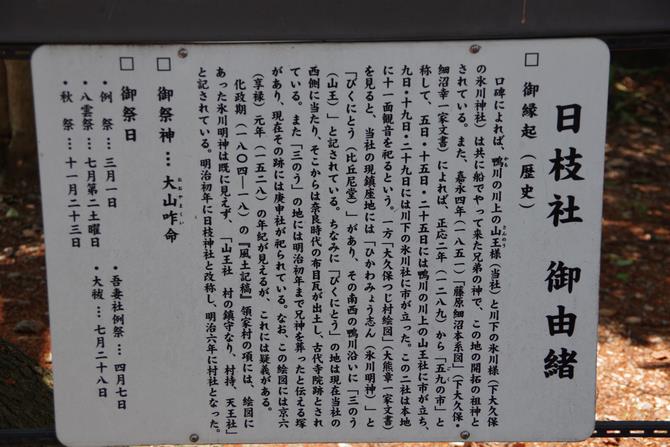 日枝社 御由緒
□ 御縁起(歴史)
口碑によれば、鴨川の川上の山王様(当社)と川下の氷川様(下大久保
の氷川神社)は共に船でやって来た兄弟の神で、この地の開拓の祖神と
されている。また、嘉永四年(一八五一)『藤原細沼本系図』(下大久保・
細沼幸一家文書)によれば、正応二年(一二八九)から「五九の市」と
称して、五日・十五日・二十五日には鴨川の川上の山王社に市が立ち、
九日・十九日・二十九日には川下の氷川社に市が立った。この二社は本地
に十一面観音を祀るという。一方「大久保つじ村絵図」(大熊章一家文書)
を見ると、当社の現鎮座地には「ひかわみょう志ん(氷川明神)」と
「びくにとう(比丘尼堂)」があり、その南西の鴨川沿いに「三のう
(山王)」と記されている。ちなみに「びくにとう」の地は現在当社の
西側に当たり、そこからは奈良時代の布目瓦が出土し、古代寺院跡とされ
ている。また「三のう」の地には明治初年まで兄神を葬ったと伝える塚
があり、現在その跡には庚申社が祀られている。なお、この絵図には京六
(享禄)元年(一五二八)の年紀が見えるが、これには疑義がある。
化政期(一八〇四―一八)の『風土記稿』領家村の項には、絵図に
あった氷川明神は既に見えず、「山王社 村の鎮守なり、村持、天王社」
と記されている。明治初年に日枝神社と改称し、明治六年に村社となった。
□ 御祭神…大山咋命
□ 御祭日
・例 祭…三月一日 ・吾妻社例祭…四月七日
・八雲祭…七月第二土曜日 ・大祓…七月二十八日
・秋 祭…十一月二十三日